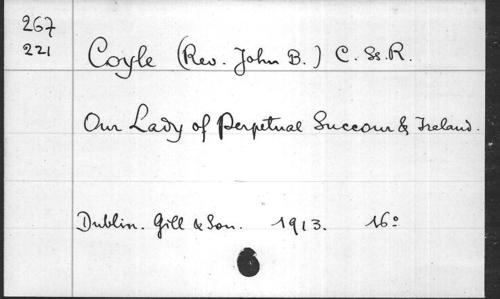 267
221
Coyle (Rev. John B.) C. Ss. R.
Our Lady of Perpetual Succour & Ireland.
Dublin. Gill & Son. 1913. 16º